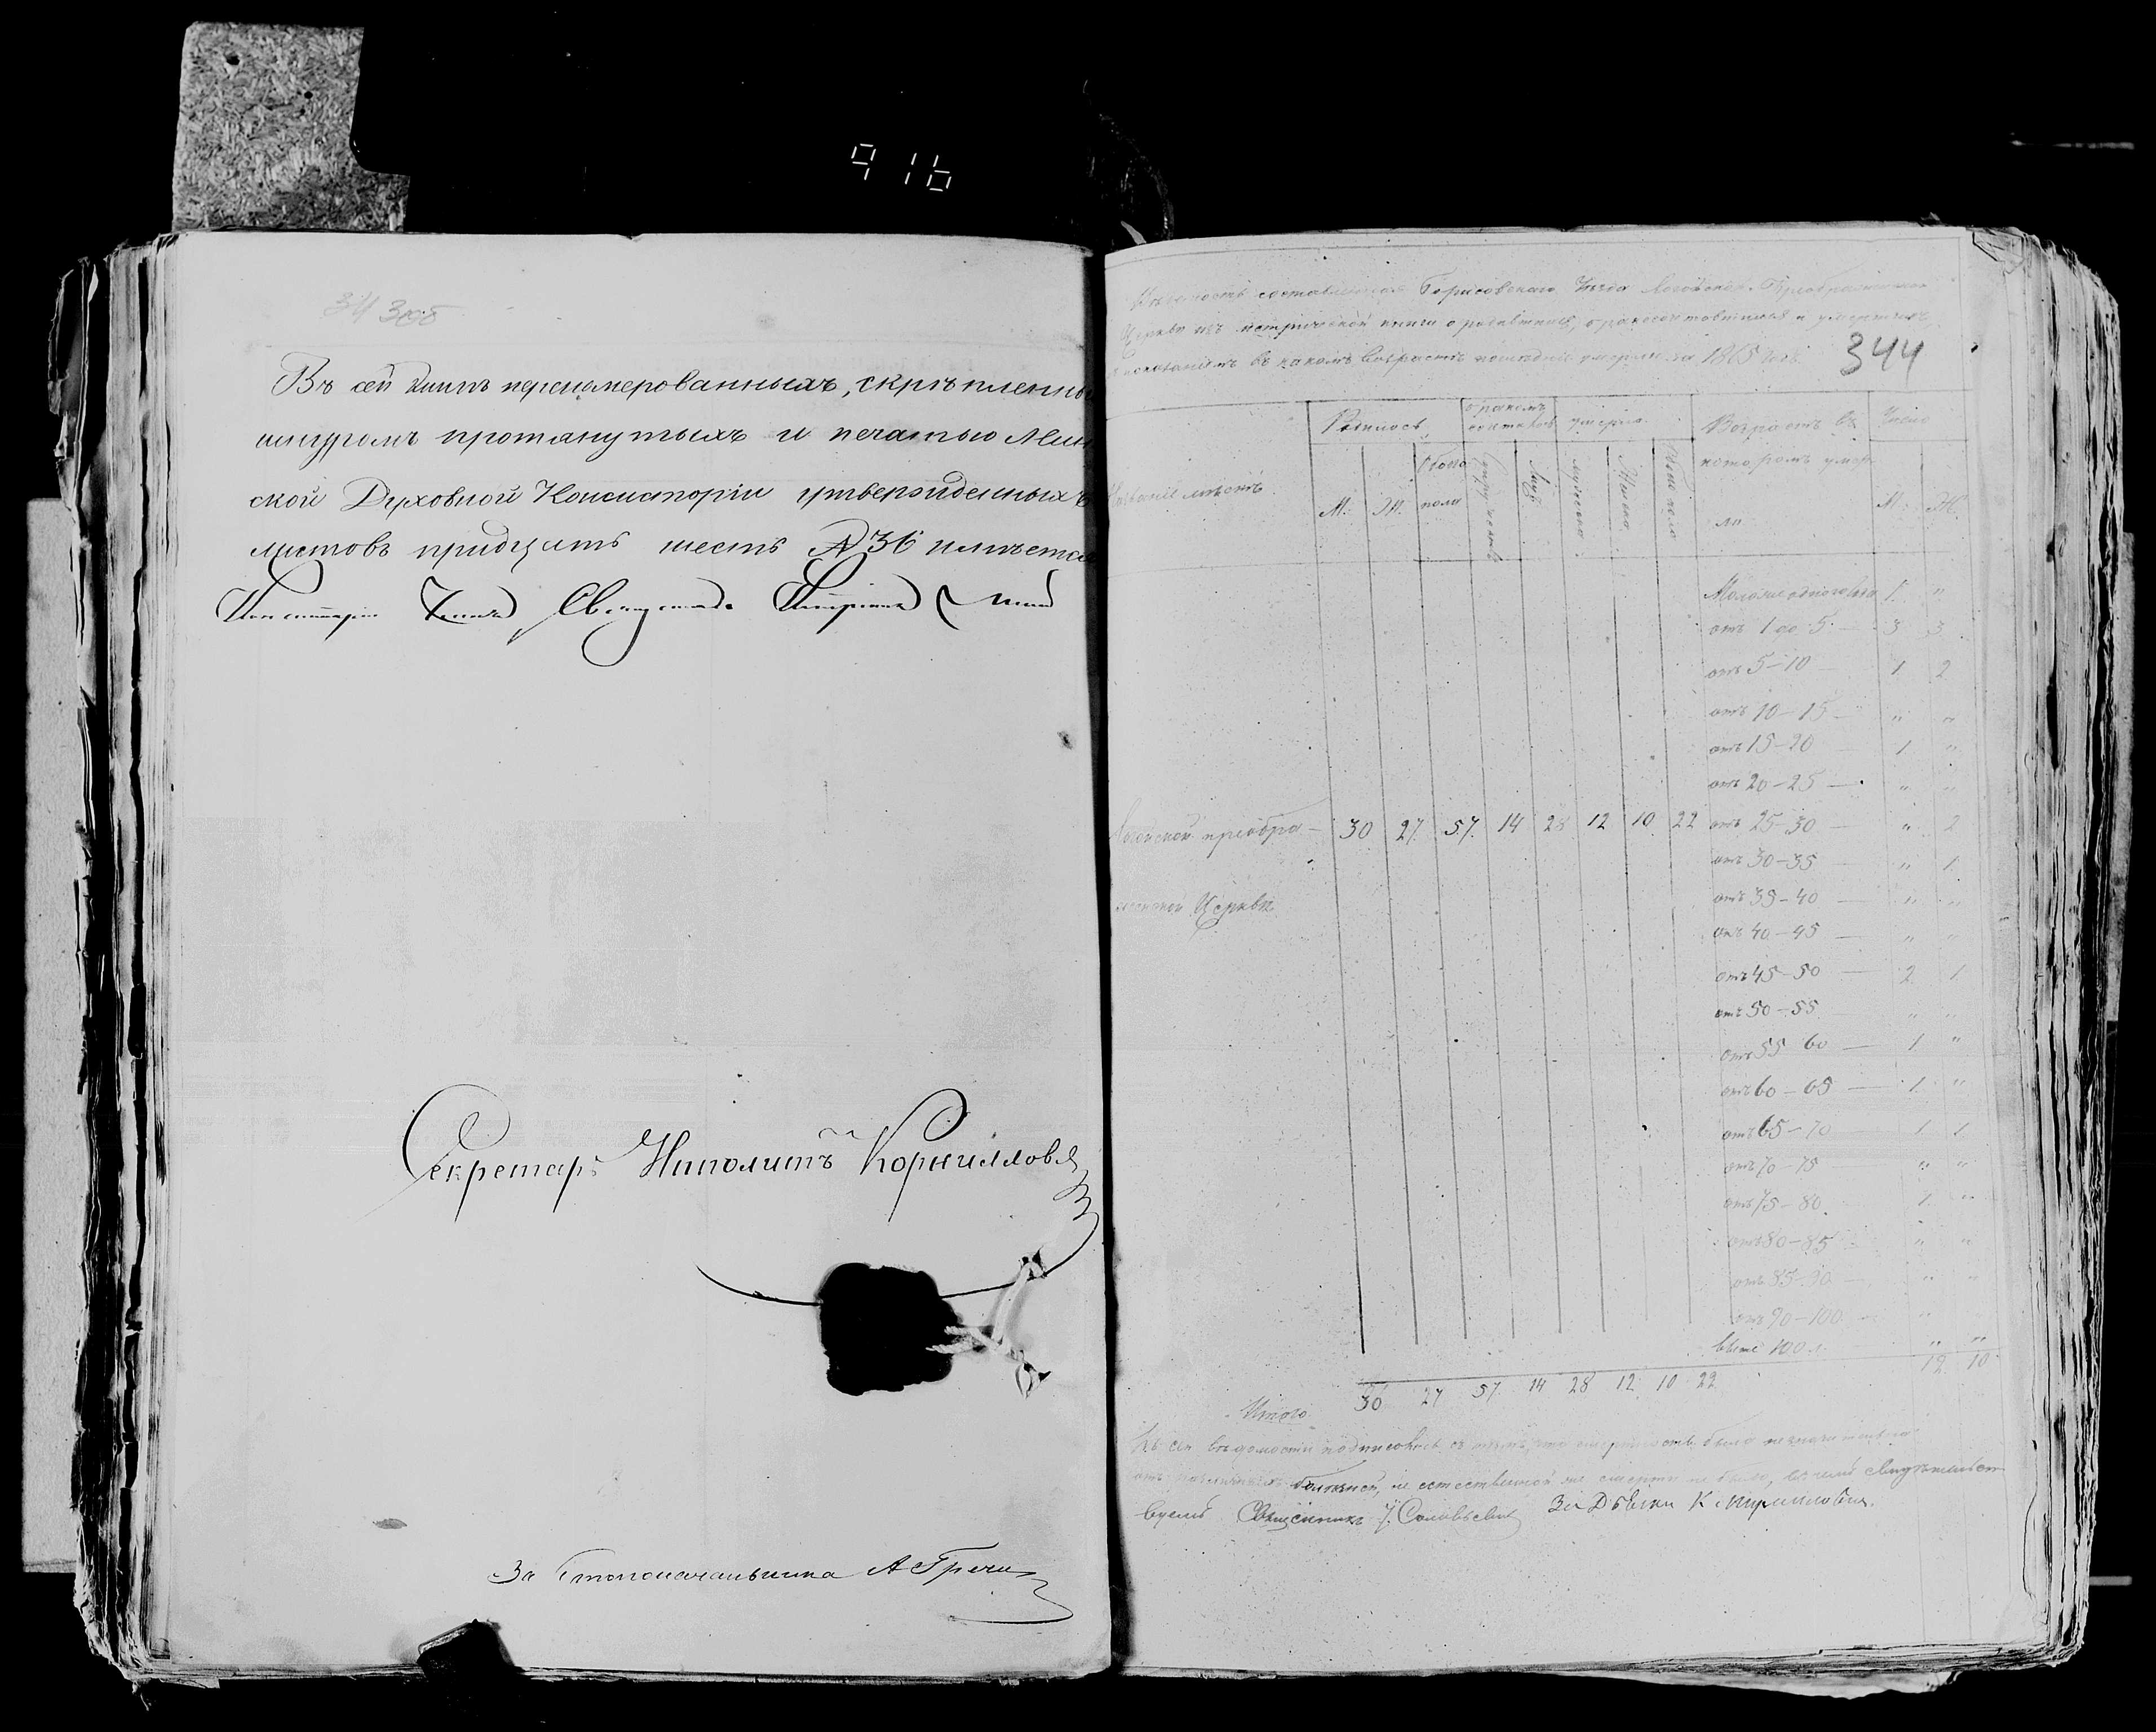 916
34 308
Въ сей книгѣ перенумерованныхъ, скрѣпленны
шнуромъ протянутыхъ и печатью Мин
ской Духовной Консисторіи утвержденныхъ
листовъ тридцать шесть № 36 имѣется
Консисторіи Членъ Священникъ
Секретарь Иполитъ Корнилловъ
За Столоначальника А Гречи
Вѣдомость составленная Борисовскаго Уѣзда Логойской Преображенской
Церкви изъ метрической книги о родившихся, бракосочетавшихся и умершихъ
въ какомъ возрастѣ послѣдніе умерли за 1865 годъ
344
Родилось бракомъ сочетавш умерло Возрастъ въ Число
Названіе мѣстъ М. Ж. Обоего пола Супружествъ Лицъ мужеска Женска Обоего пола которомъ умер ли М. Ж.
Моложе одного года 1 "
отъ 1 до 5 — 3 3
отъ 5–10 — 1 2
отъ 10–15 — " "
отъ 15–20 — 1 "
отъ 20–25 — " "
Логойской преобра– 30 27 57 14 28 12 10 22 отъ 25–30 — " 2
отъ 30–35 — " 1
женской Церкви отъ 35–40 — " "
отъ 40–45 — " "
отъ 45–50 — 2 1
отъ 50–55 " "
отъ 55 60 — 1 "
отъ 60–65 — 1 "
отъ 65–70 — 1 1
отъ 70–75 " "
отъ 75–80 1 "
отъ 80–85 " "
отъ 85–90 — " "
отъ 90–100 — "
выше 100 л. " "
12 10
Итого 30 27 57 14 28 12 10 22
Къ сей вѣдомости подписовкѣ съ тѣмъ, что смертность была незначительна
отъ болѣзней, не естественной же смерти не было, въ чемъ свидѣтельст
вуемъ Священникъ Соловьевичъ За Дьячка К Мирановичъ